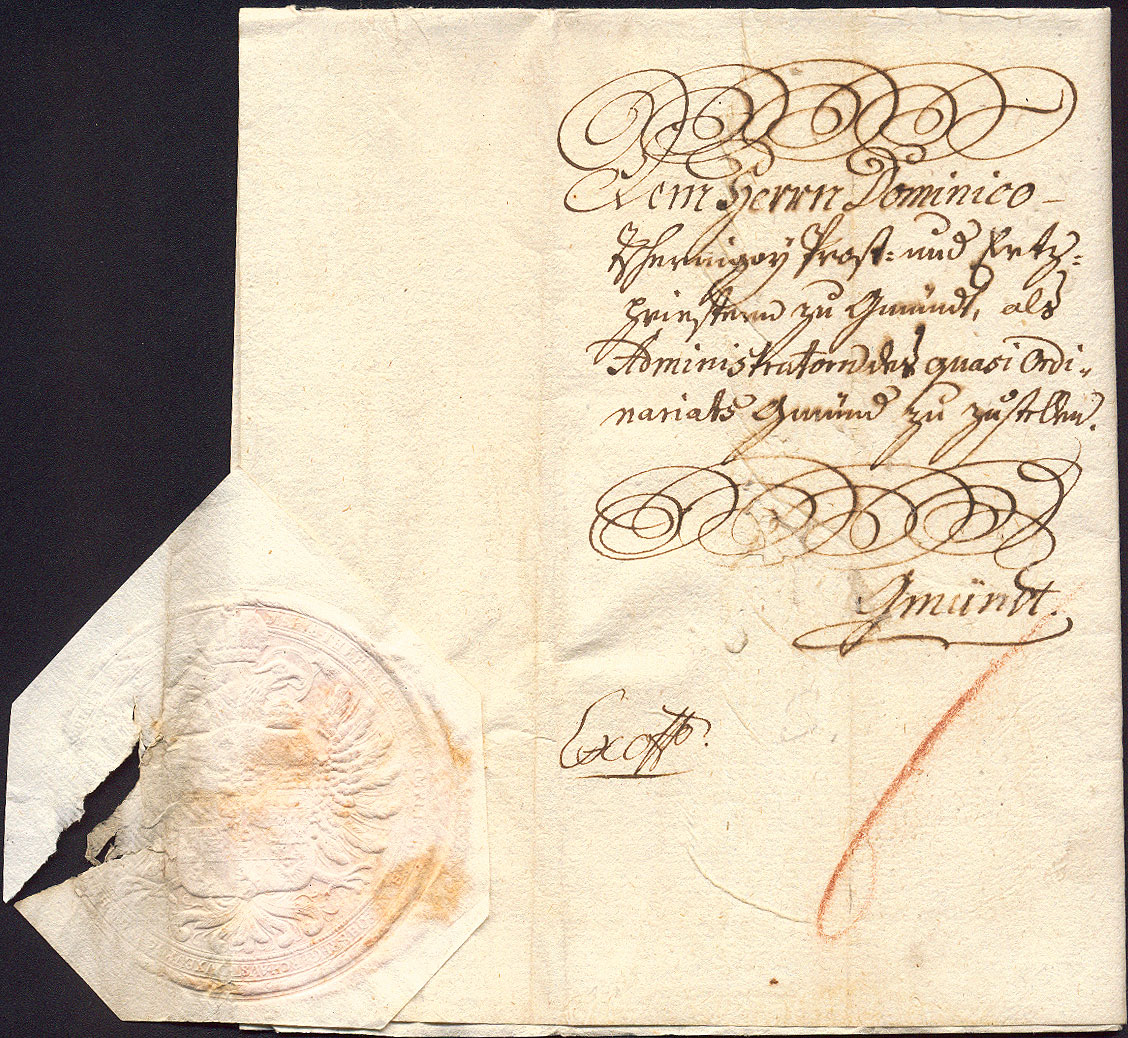 Dem Herrn Dominico
Tschernigoy Prost- und Ertz-
priestern zu Gmündt, als
Administratorn des quasi Ordi-
nariats Gmünd zu zustellen.
Gmündt.
Ex offo.